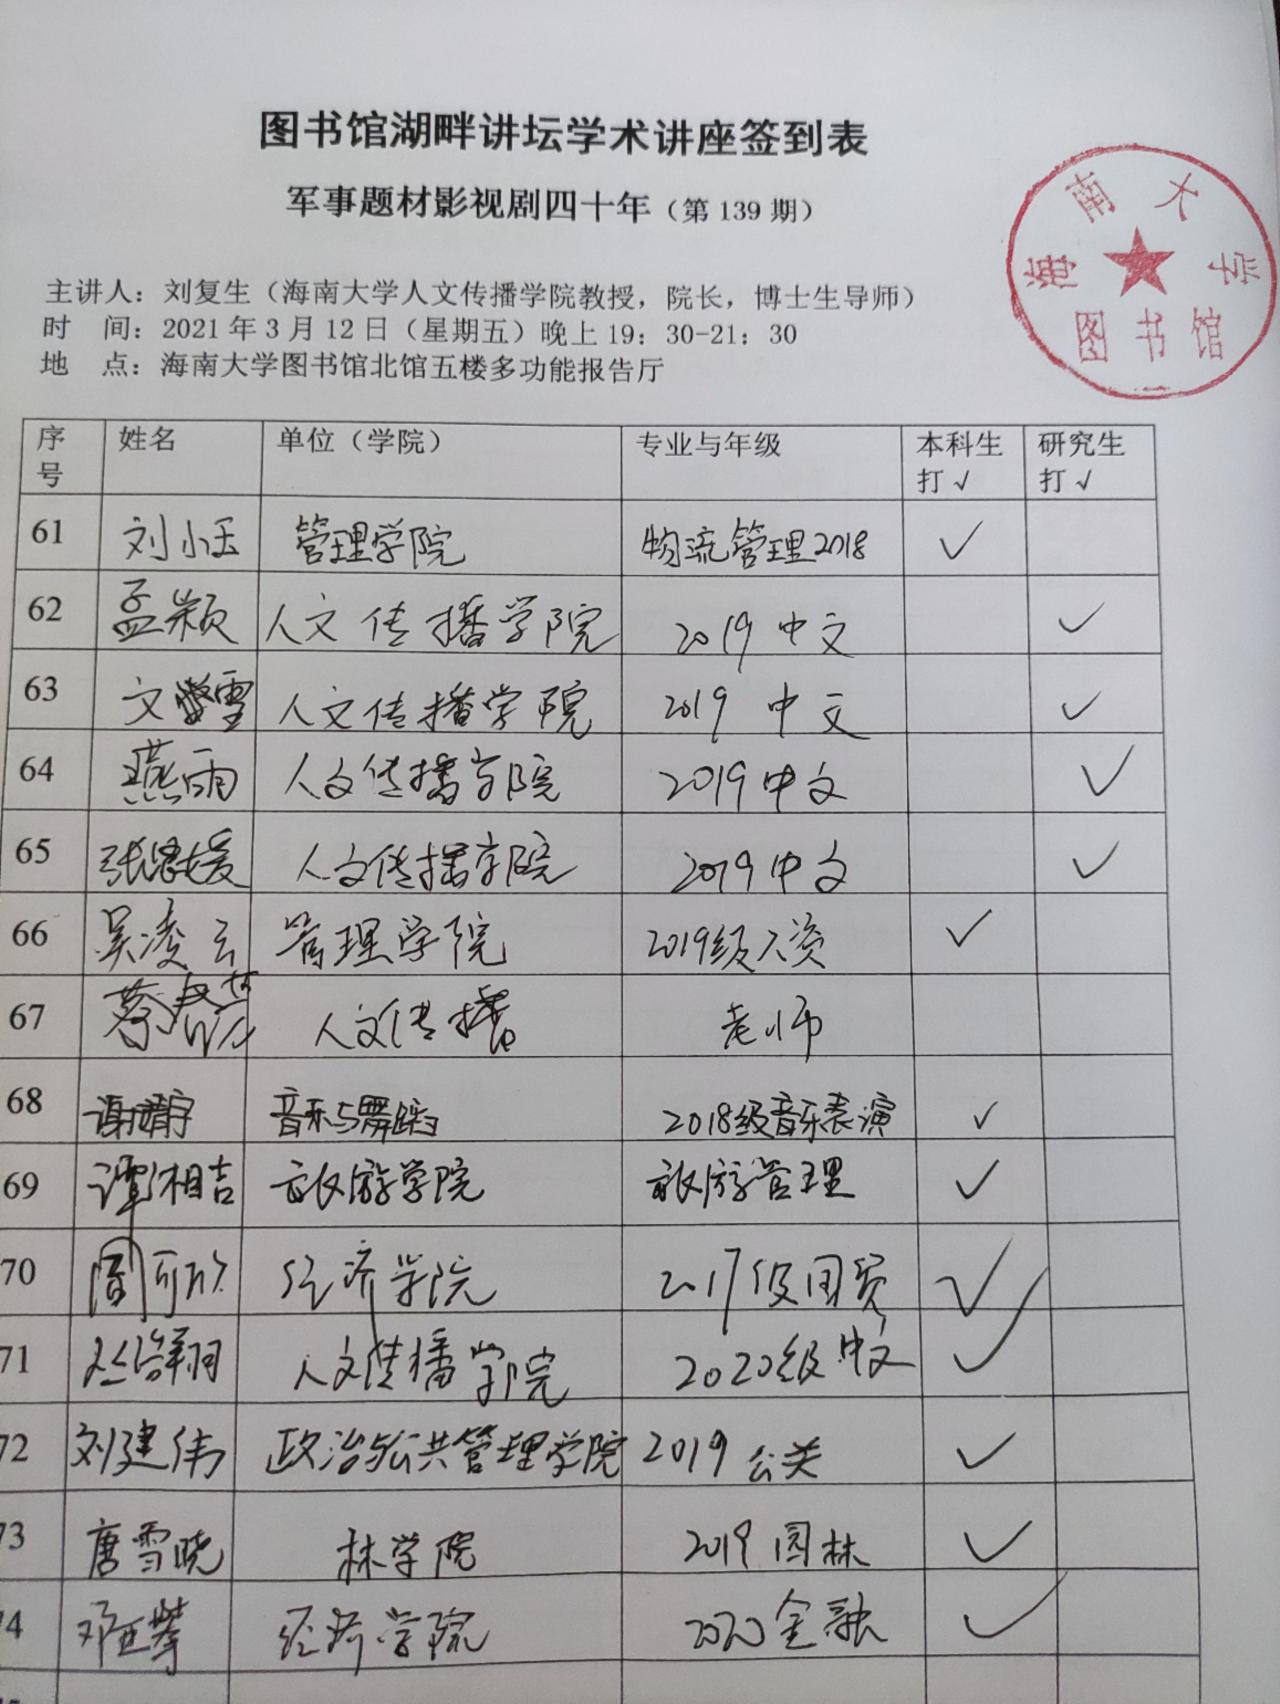 图书馆湖畔讲坛学术讲座签到表
军事题材影视剧四十年（第 139 期）
海南大学
图书馆
主讲人：刘复生（海南大学人文传播学院教授，院长，博士生导师）
时 间：2021 年 3 月 12 日（星期五）晚上 19：30-21：30
地 点：海南大学图书馆北馆五楼多功能报告厅
序号 姓名 单位（学院） 专业与年级 本科生打√ 研究生打√
61 刘小玉 管理学院 物流管理2018 √
62 孟颖 人文传播学院 2019 中文 √
63 文雪 人文传播学院 2019 中文 √
64 燕雨 人文传播学院 2019中文 √
65 张媛 人文传播学院 2019中文 √
66 吴凌云 管理学院 2019级人资 √
67 蔡 人文传播 老师
68 谢婧宇 音乐与舞蹈 2018级音乐表演 √
69 谭湘吉 旅游学院 旅游管理 √
70 周可欣 经济学院 2017级国贸 √
71 人文传播学院 2020级中文 √
72 刘建伟 政治与公共管理学院 2019 公关 √
73 唐雪晓 林学院 2019 园林 √
74 邓 经济学院 2020金融 √